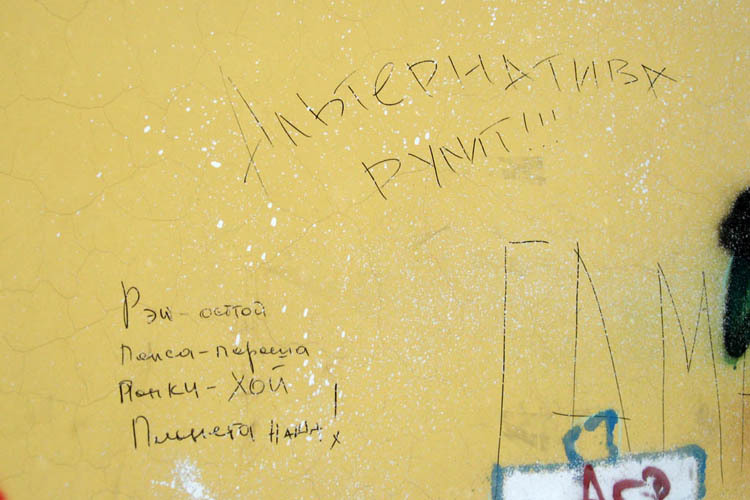 Альтернатива
рулит!!!
Рэп - остой
попса - параша
Панки - ХОЙ
Планета наша!
ГАМ